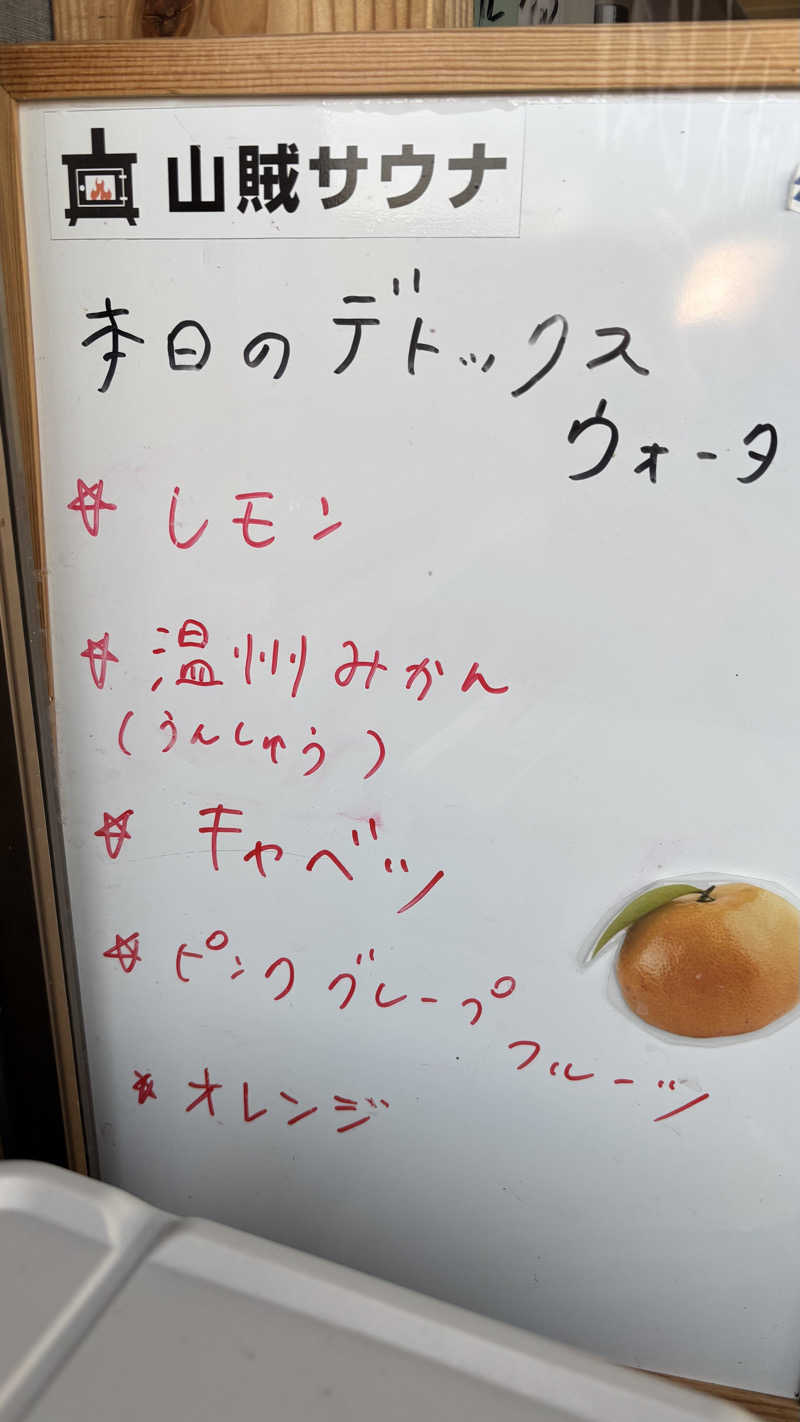 山賊サウナ
本日のデトックス
ウォータ
☆ レモン
☆ 温州みかん
(うんしゅう)
☆ キャベツ
☆ ピンクグレープ
フルーツ
☆ オレンジ